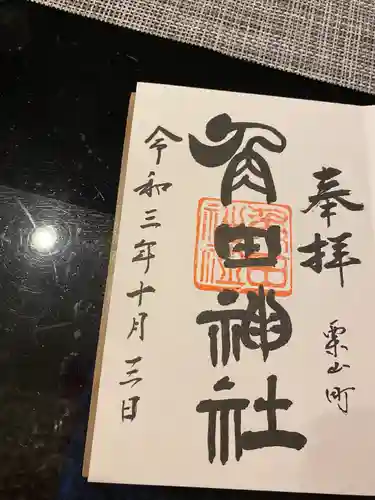 奉拝
栗山町
角田神社
令和三年十月三日